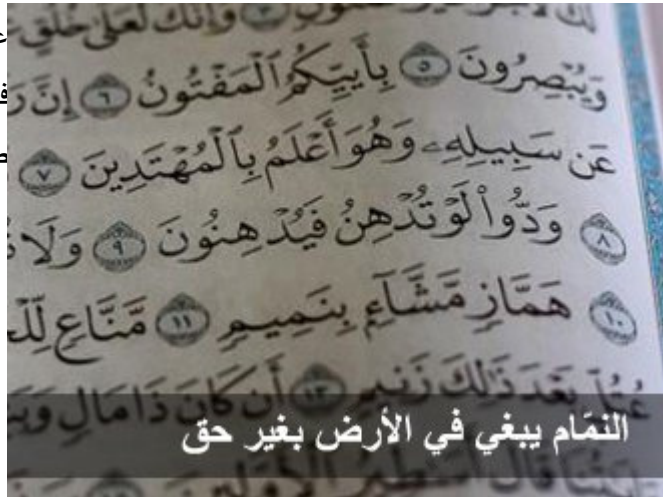 وَإِنَّكَ لَعَلَىٰ خُلُقٍ
وَيُبْصِرُونَ ٥ بِأَييِّكُمُ ٱلْمَفْتُونُ ٦ إِنَّ
عَن سَبِيلِهِۦ وَهُوَ أَعْلَمُ بِٱلْمُهْتَدِينَ ٧
٨ وَدُّوا۟ لَوْ تُدْهِنُ فَيُدْهِنُونَ ٩ وَلَا
١٠ هَمَّازٍ مَّشَّآءٍۭ بِنَمِيمٍ ١١ مَّنَّاعٍ
عُتُلٍّۭ بَعْدَ ذَٰلِكَ زَنِيمٍ ١٣ أَن كَانَ ذَا مَالٍ
النمّام يبغي في الأرض بغير حق
قَالَ أَسَٰطِيرُ ٱلْأَوَّلِينَ